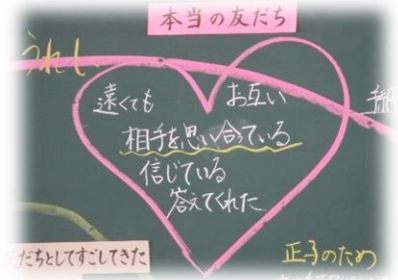 本当の友だち
うれしい
遠くても
お互い
相手を思い合っている
信じている
答えてくれた
だちとしてすごしてきた
正子のため